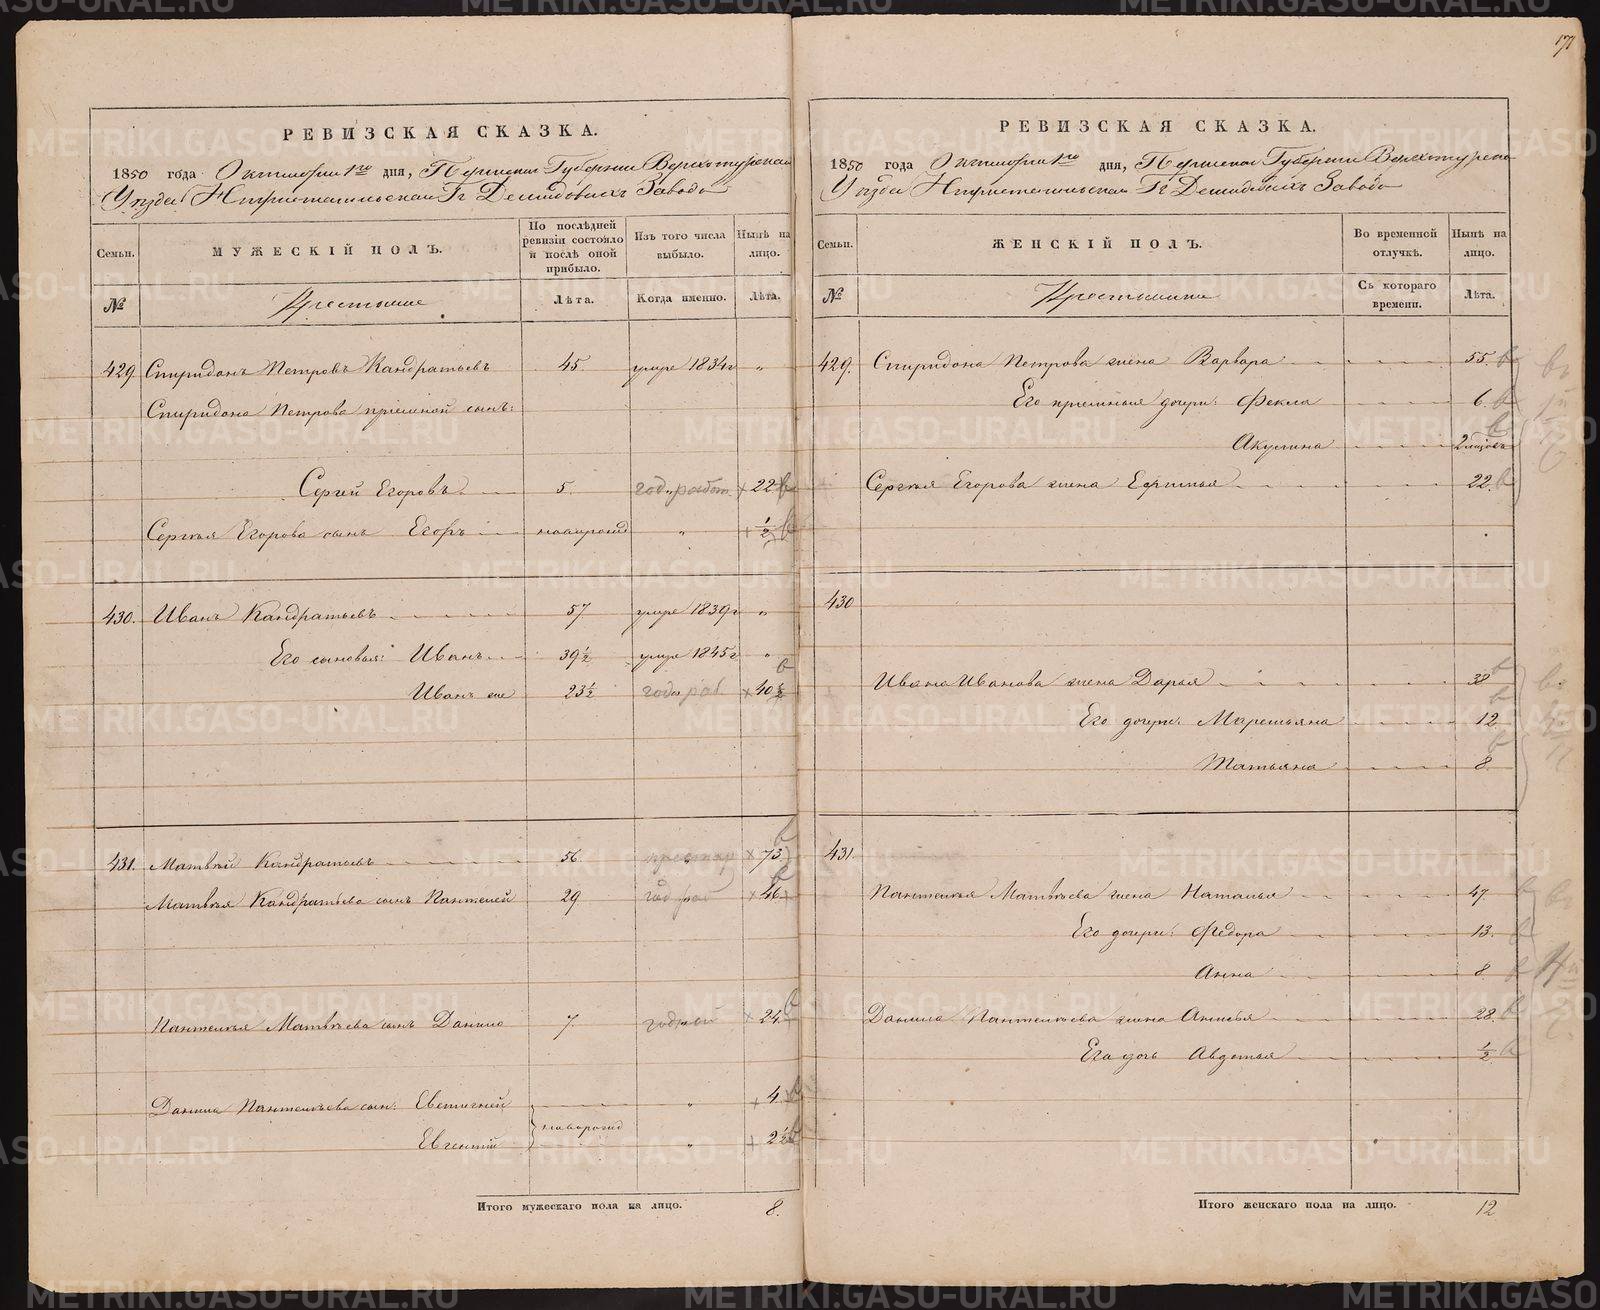 171
РЕВИЗСКАЯ СКАЗКА.
1850 года Октября 1го дня, Пермской Губернии Верхотурскаго
Уѣзда Нижнетагильскаго Гг Демидовыхъ Завода
Семьи.
МУЖЕСКІЙ ПОЛЪ.
По послѣдней ревизіи состояло и послѣ оной прибыло.
Изъ того числа выбыло.
Нынѣ на лицо.
№
Крестьяне
Лѣта.
Когда именно.
Лѣта.
429. Спиридонъ Петровъ Кандратьевъ 45. умре 1834г "
Спиридона Петрова пріемной сынъ:
Сергей Егоровъ 5. год. работ. 22
Сергѣя Егорова сынъ Егоръ новорожд " ½
430. Иванъ Кандратьевъ 57 умре 1839г "
Его сыновья: Иванъ 39½ умре 1845г "
Иванъ еще 23½ годн раб 40½
431. Матвѣй Кандратьевъ 56. престар 73
Матвѣя Кандратьева сынъ Пантелей 29 год раб 46
Пантелѣя Матвѣева сынъ Данило 7. 24
Данила Пантелѣева сын: Евстигней " 4
новорожд
Евгеній " 2½
Итого мужескаго пола на лицо. 8.
РЕВИЗСКАЯ СКАЗКА.
1850 года Октября 1го дня, Пермской Губерніи Верхотурскаго
Уѣзда Нижнетагильскаго Гг Демидовыхъ Завода
Семьи.
ЖЕНСКІЙ ПОЛЪ.
Во временной отлучкѣ.
Нынѣ на лицо.
№
Крестьянки
Съ котораго времени.
Лѣта.
429. Спиридона Петрова жена Варвара 55.
Его пріемныя дочери: Фекла 6.
Акулина 2 мѣсяц
Сергѣя Егорова жена Ефимья 22.
430
Ивана Иванова жена Дарья 38
Его дочери: Маремьяна 12
Татьяна 8.
431.
Пантелѣя Матвѣева жена Наталья 47.
Его дочери: Федора 13.
Анна 8
Данила Пантелѣева жена Анисья 28.
Его дочь Авдотья ½
Итого женскаго пола на лицо. 12
METRIKI.GASO-URAL.RU